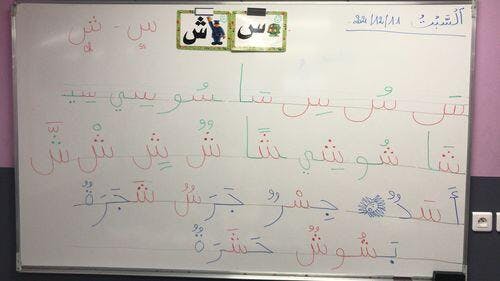 اَلسَّبْتُ : 22/12/11
س ش
سٍ - شٍ
سَ سُ سِ سَا سُو سِي
شَا شُو شِي شًا شٌ شٍ شْ شَّ
أَسَدٌ جِسْرٌ جَرَسٌ شَجَرَةٌ
بَشُوشٌ حَشَرَةٌ